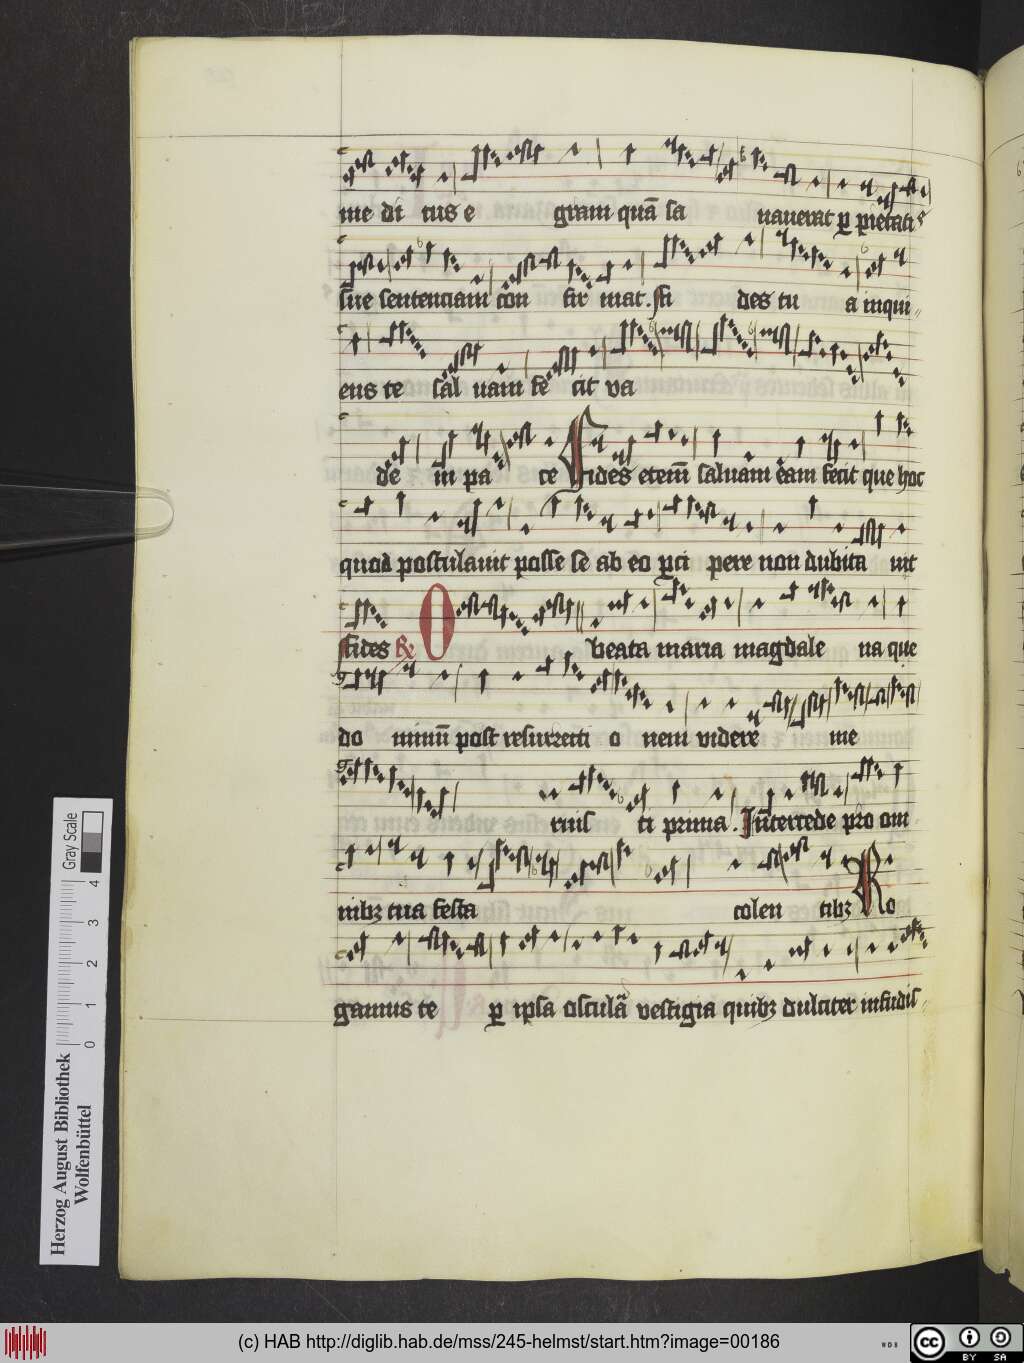 me di tus e gram quā sa nauerat ꝑ pietatis
sue sentenciam con fir mat. ffi des tu a inqui„
ens te sal uam fe cit va
de in pa ce Fides etem̄ saluam eam fecit que hoc
quod postulauit posse se ab eo ꝑci pere non dubita uit
ffides ℟ O beata maria magdale na que
do minū post resurrecti o nem videre me
ruis ti prima. Int̄ercede pro om
nibꝫ tua festa colen tibꝫ Ro
gamus te ꝑ ipsa osculā vestigia quibꝫ dulciter infudis„
Herzog August Bibliothek
Wolfenbüttel
Gray Scale
0 1 2 3 4
(c) HAB http://diglib.hab.de/mss/245-helmst/start.htm?image=00186
WDB
cc BY SA